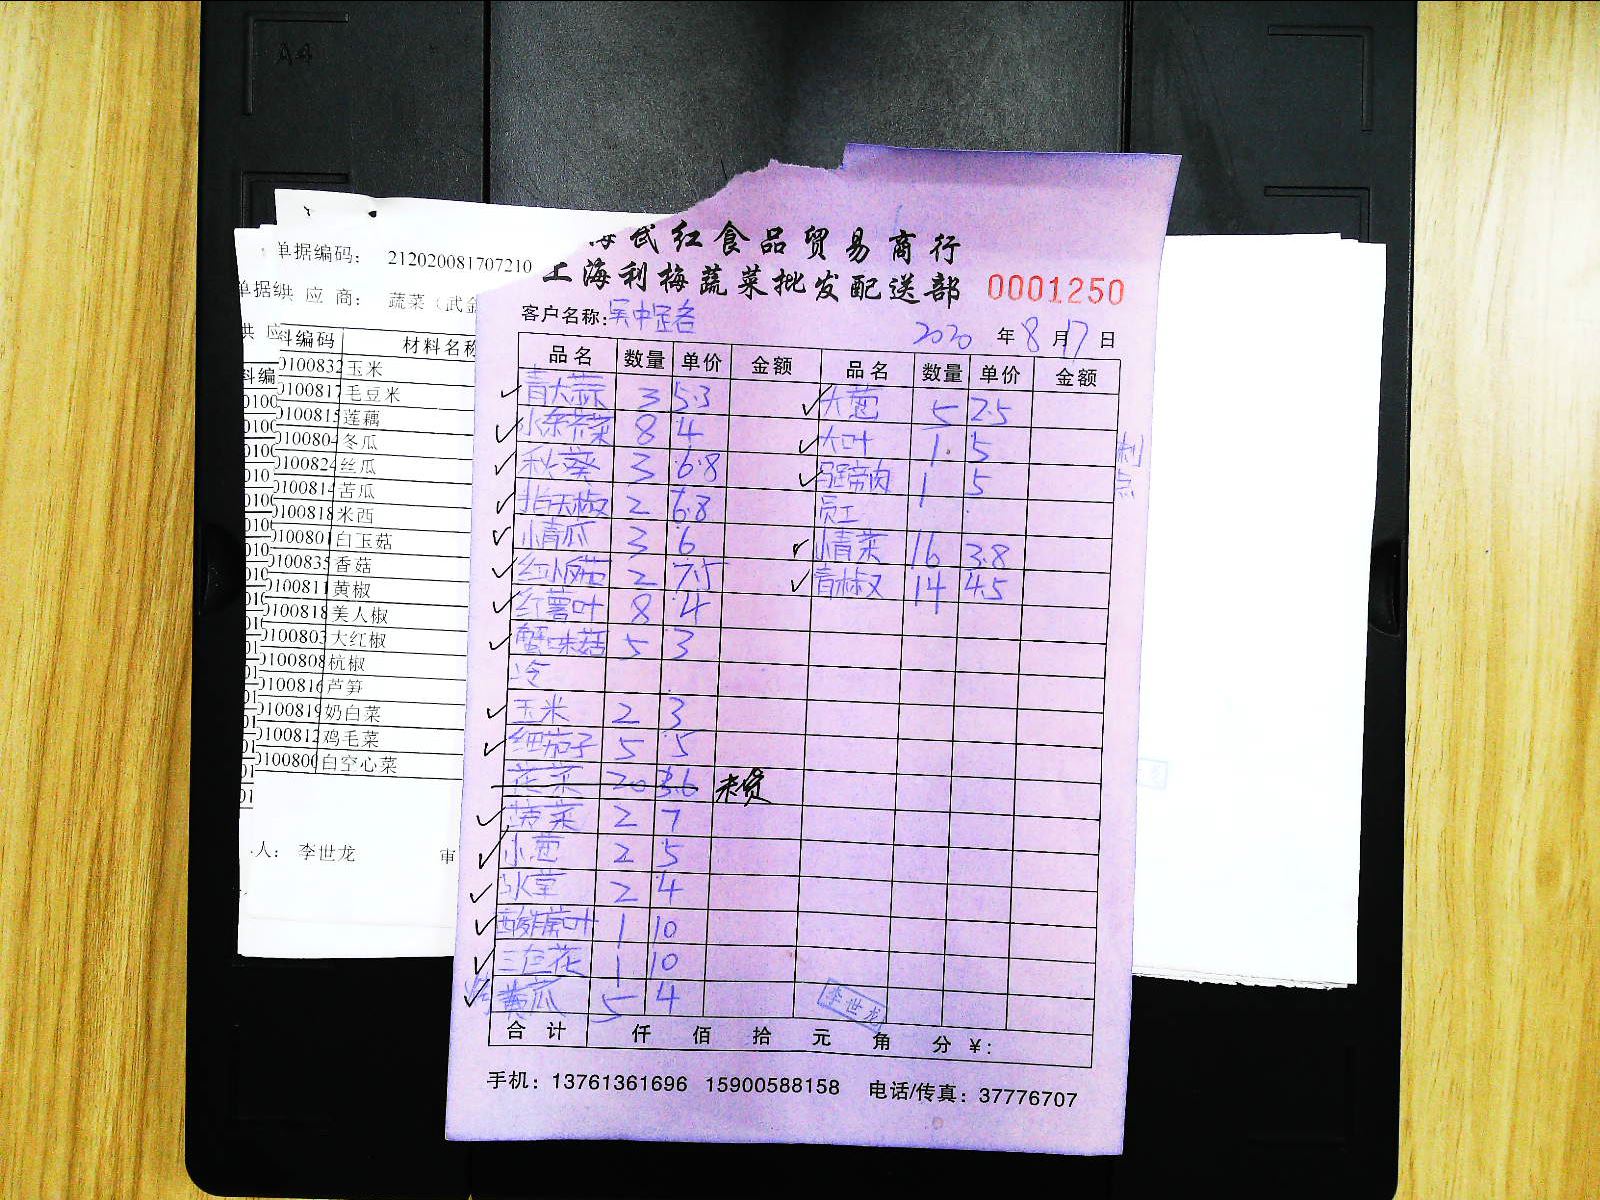 A4
单据编码： 212020081707210
单据编
供 应 商： 蔬菜（武金
供 应
料编码 材料名称
料编
0100832 玉米
0100817 毛豆米
0100815 莲藕
0100804 冬瓜
0100824 丝瓜
0100814 苦瓜
0100818 米西
0100801 白玉菇
0100835 香菇
0100811 黄椒
0100818 美人椒
0100803 大红椒
0100808 杭椒
0100816 芦笋
0100819 奶白菜
0100812 鸡毛菜
0100800 白空心菜
人： 李世龙 审
海武红食品贸易商行
上海利梅蔬菜批发配送部 0001250
客户名称: 吴中路名
2020 年 8 月 17 日
品名 数量 单价 金额 品名 数量 单价 金额
青大蒜 3 5.3 大葱 5 2.5
水东芥菜 8 4 大叶 1 5
秋葵 3 6.8 马蹄肉 1 5
指天椒 2 6.8 员工
小青瓜 3 6 小青菜 16 3.8
红小番茄 2 7.5 青椒 14 4.5
红薯叶 8 4
蟹味菇 5 3
冷
玉米 2 3
细茄子 5 5
花菜 20 3.6 未货
菠菜 2 7
小葱 2 5
2 4
1 10
三色花 1 10
黄瓜 5 4
李世龙
合 计 仟 佰 拾 元 角 分 ¥:
手机：13761361696 15900588158 电话/传真：37776707